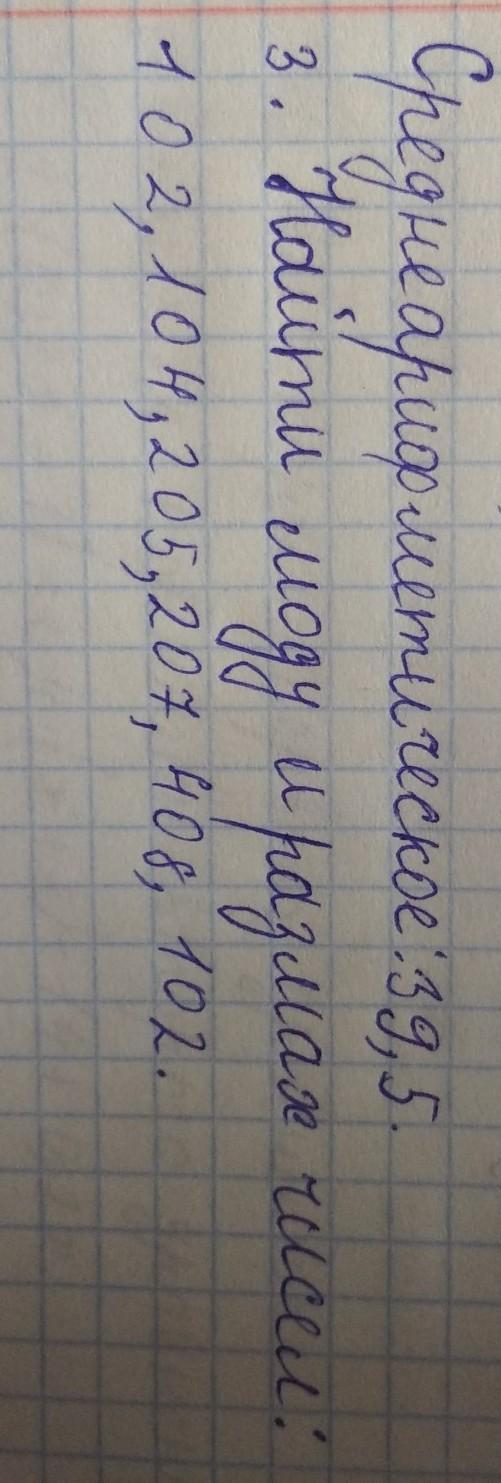 Среднеарифметическое: 39,5.
3. Найти моду и размах чисел:
102, 104, 205, 207, 408, 102.